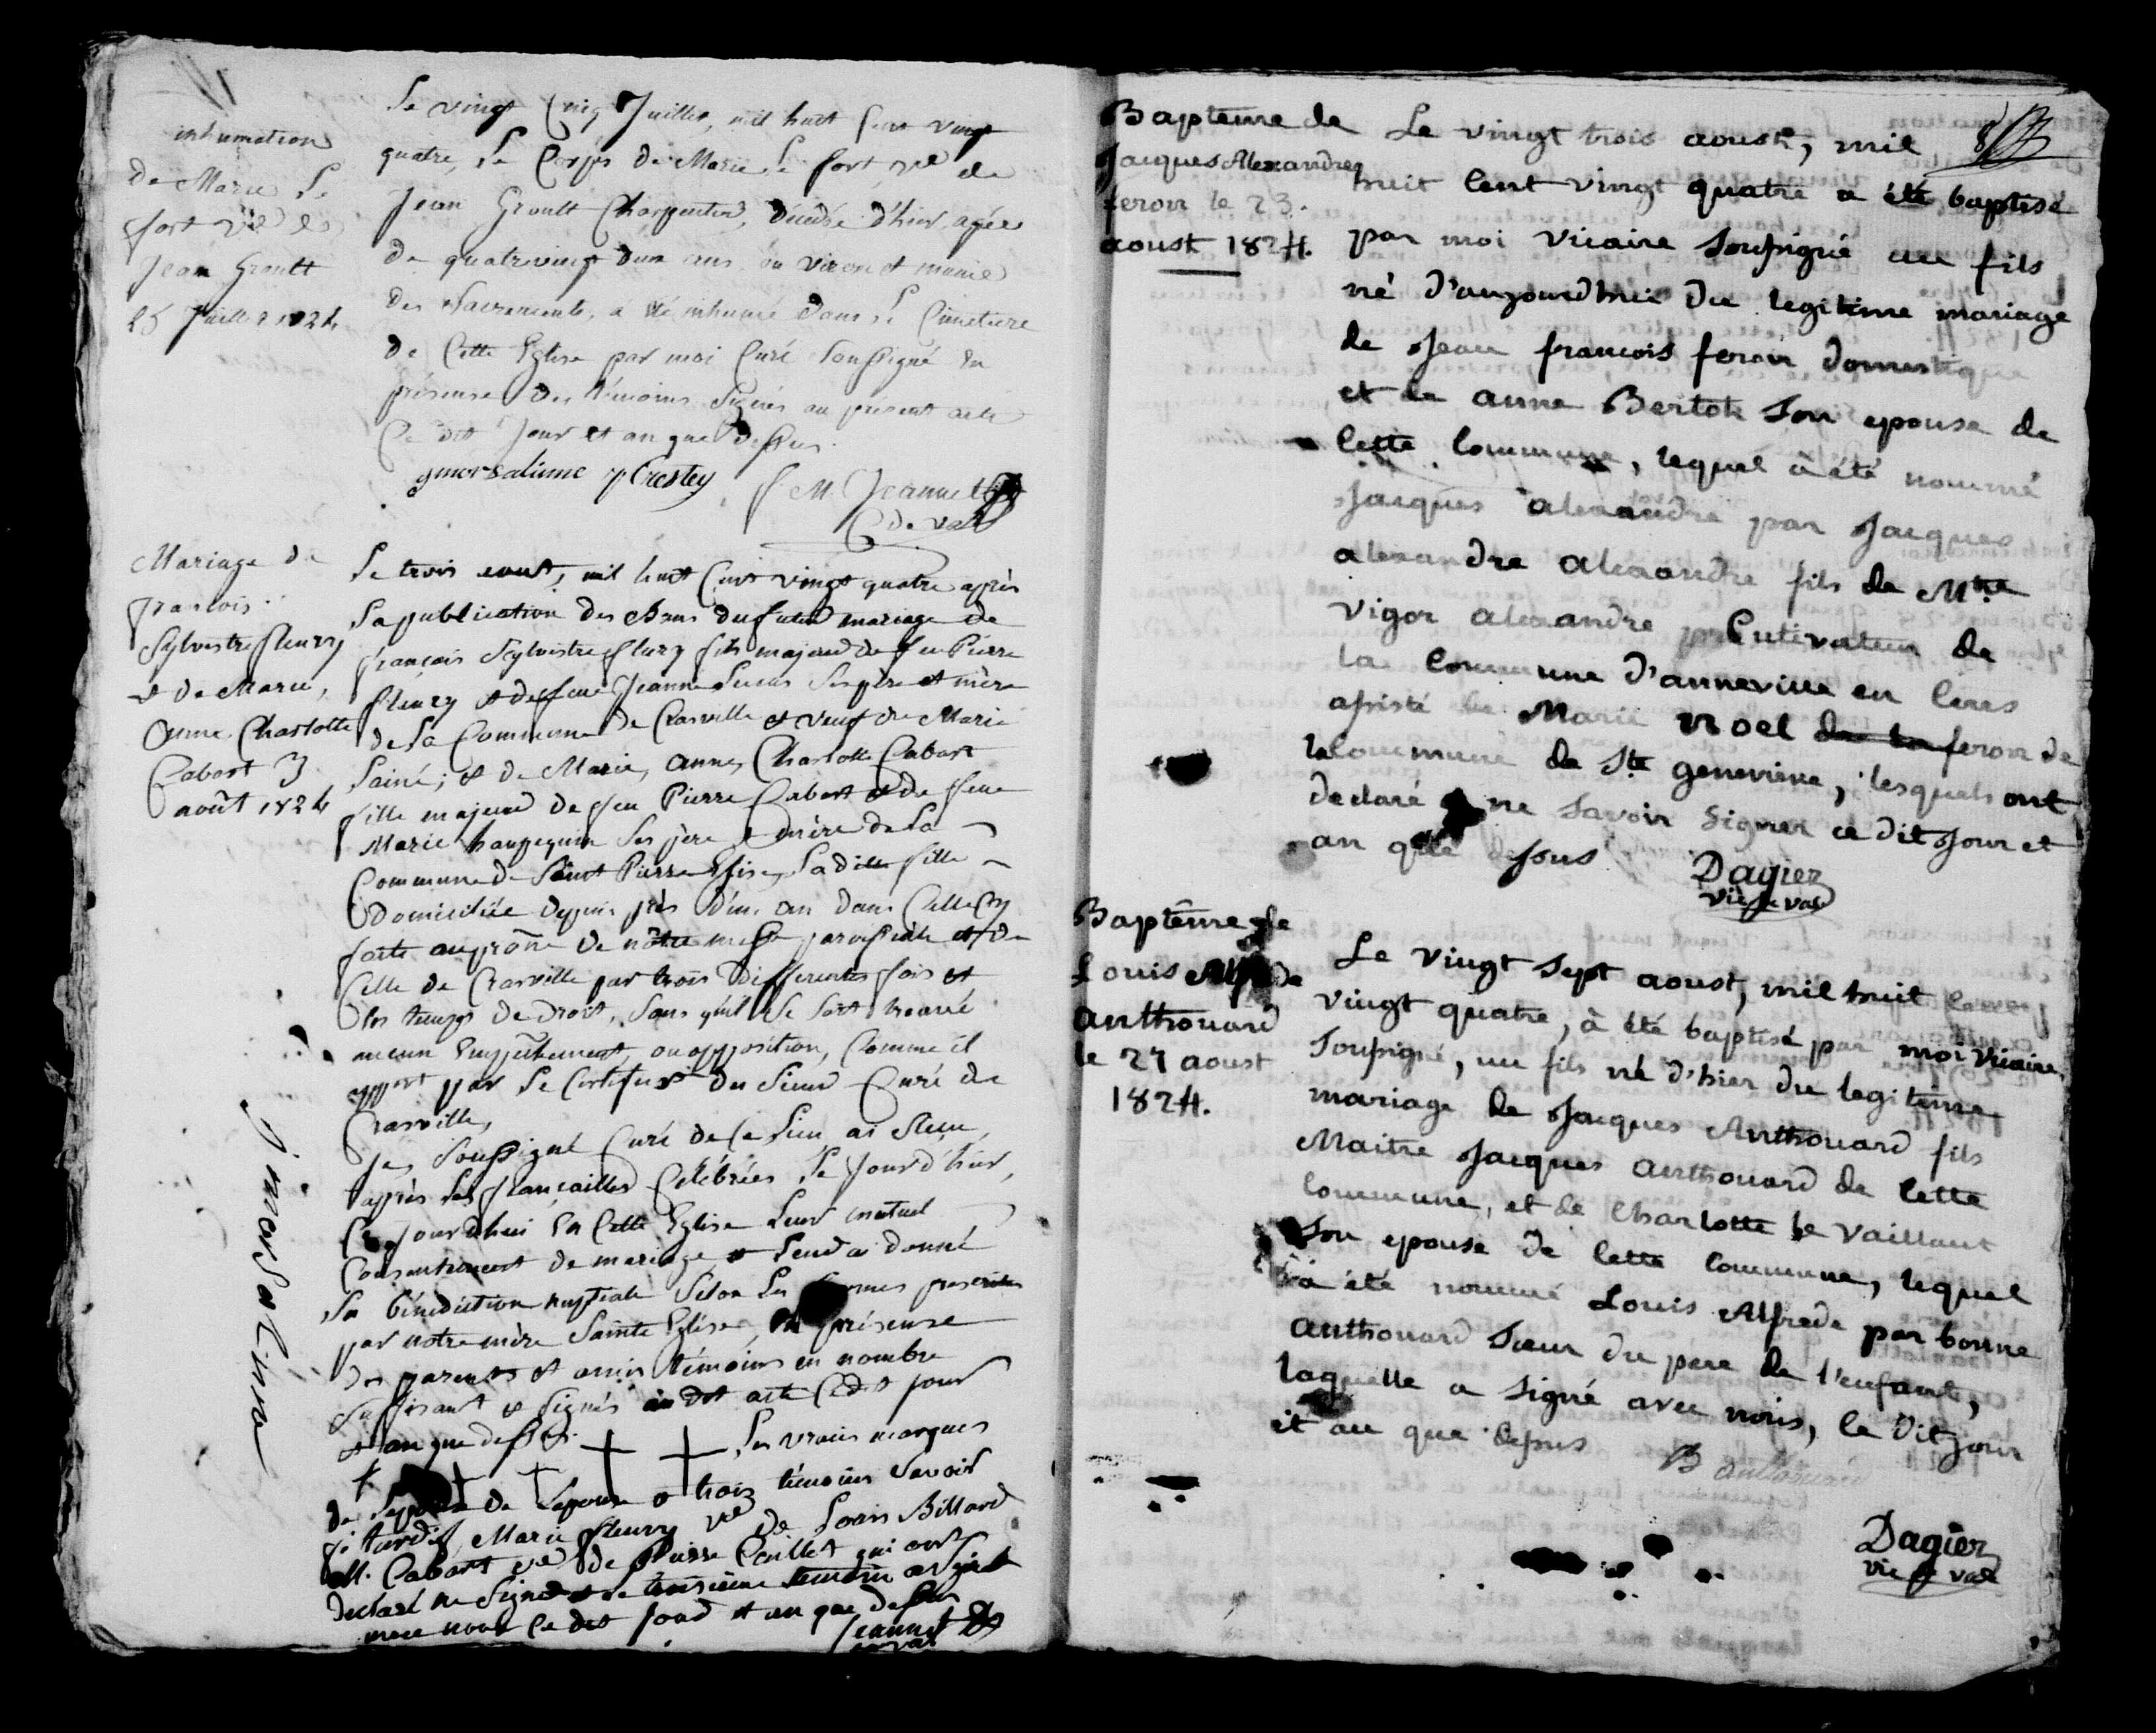 inhumation
de Marie Le
fort vve de
Jean Groult
25 Juillet 1824
Le vingt Cinq Juillet, mil huit Cent vingt
quatre, Le Corps de Marie Le fort vve de
Jean Groult Charpentier, décédée d'hier, agée
de quatrevingt deux ans ou viron et munie
des Sacrements, a été inhumé dans Le Cimetiere
de Cette Eglise par moi Curé Soussigné en
présence des témoins Signés au présent acte
Ce dit Jour et an que dessus.
gmorsalinne p Crestey
J. M. Jeannet
C. de vale
Mariage de
francois
Sylvestre fleury
et de Marie,
Anne, Charlotte
Cabart 3
août 1824
Le trois aout, mil huit Cent vingt quatre après
La publication des Bans du futur mariage de
françois Sylvestre fleury fils majeur de feu Pierre
fleury et de feue Jeanne Lucas Ses père et mère
de La Commune de Crasville et veuf de Marie
Lainé; et de Marie, Anne, Charlotte Cabart
fille majeure de feu Pierre Cabart et de feue
Marie Ses père et mère de La
Commune de Saint Pierre Eglise, Ladite fille
Domiciliée depuis près d'un an dans Celle Cy
faite au prône de nôtre messe paroissiale et de
Celle de Crasville par trois differentes fois et
les temps de droit, Sans qu'il Se soit trouvé
aucun Empêchement, ou opposition, Comme il
appert par Le Certificat du Sieur Curé de
Crasville,
Je, Soussigné Curé de Ce Lieu ai Reçu,
après Les fiançailles Célébrées Le Jour d'hier,
Ce Jourdhui En Cette Eglise Leur mutuel
Consentement de mariage et Leur ai donné
La bénédiction nuptiale Selon Les formes prescrites
par notre mère Sainte Eglise, en présence
des parents et amis témoins en nombre
suffisant et Signés au dit acte Ce dit jour
et an que dessus. Les vraies marques
de Lepoux de Lepouse et trois témoins Savoir
f. tardif, Marie fleury vve de Louis Billard
M. Cabart vve de Pierre Caillet qui ont
declaré ne Signer et Le troisieme temoin a Signé
avec nous Ce dit Jour et an que dessus
Jeannet
J morsalinne
8
Baptême de
Jacques Alexandre
feron le 23.
aoust 1824.
Le vingt trois aoust, mil
huit Cent vingt quatre a été baptisé
par moi vicaire Soussigné un fils
né d'aujourdhui du legitime mariage
de Jean francois feron domestique
et de anne Bertot Son epouse de
Cette Commune, lequel à été nommé
Jacques alexandre par Jacques
alexandre alexandre fils de Mtre
vigor alexandre Cultivateur de
la Commune d'anneville en Ceres
assisté de Marie Noel feron de
la Commune de Ste genevieve, lesquels ont
declaré ne Savoir Signer ce dit Jour et
an que dessus
Dagier
vic de vale
Baptême de
Louis Alfrede
Anthouard
le 27 aoust
1824.
Le vingt Sept aoust, mil huit Cent
vingt quatre, à été baptisé par moi vicaire
Soussigné, un fils né d'hier du legitime
mariage de Jacques Anthouard fils
Maitre Jacques Anthouard de Cette
Commune, et de Charlotte le vaillant
Son epouse de Cette Commune, lequel
à été nommé Louis Alfrede par bonne
anthouard Sœur du pere de l'enfant,
laquelle a Signé avec nous, le Dit jour
et an que dessus
B anthouard
Dagier
vic de vale